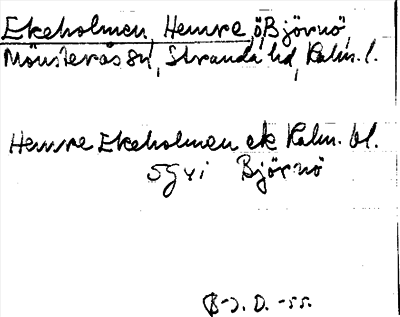 Ekeholmen, Hemre, ö, Björnö,
Mönsterås sn, Stranda hd, Kalm. l.
Hemre Ekeholmen ek Kalm. bl.
5g vi Björnö
B-j. D. -55.